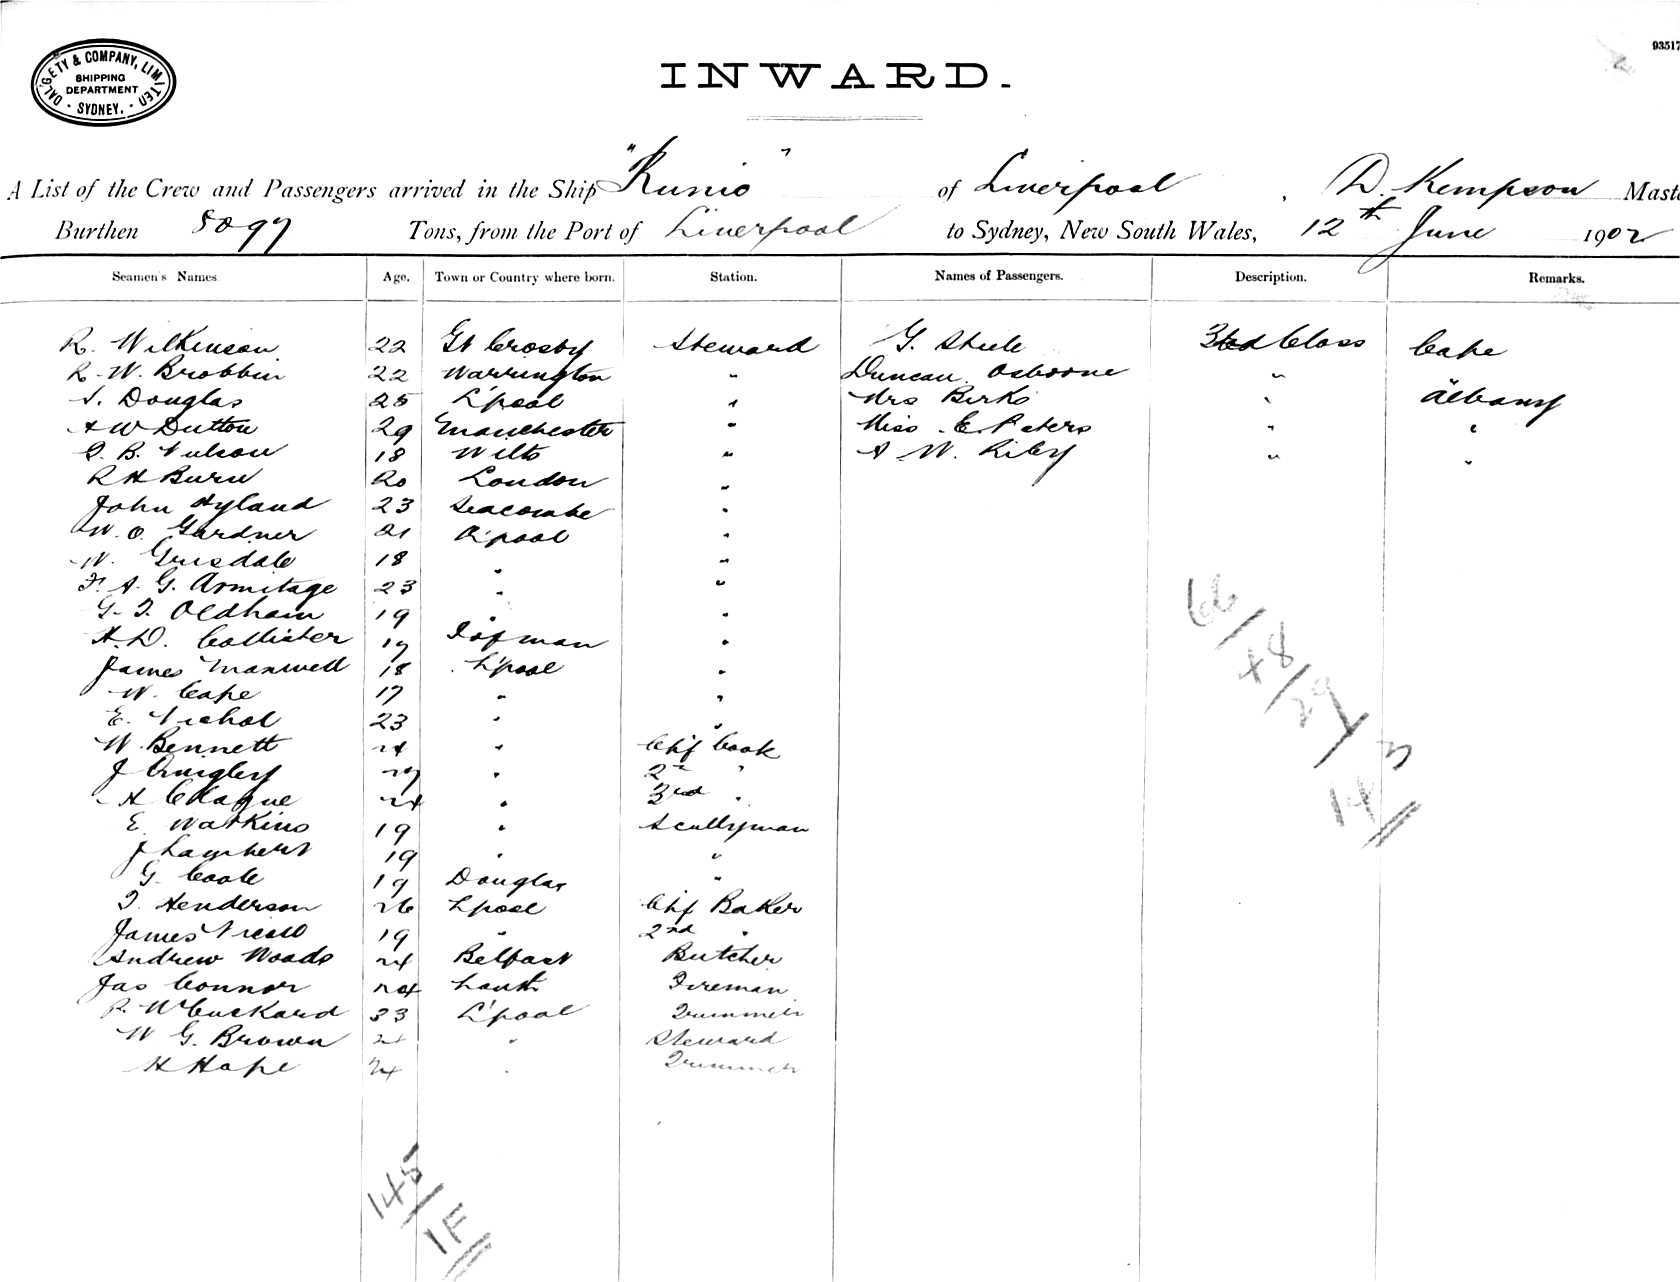 DALGETY & COMPANY, LIMITED
SHIPPING
DEPARTMENT
SYDNEY.
93517
INWARD.
A List of the Crew and Passengers arrived in the Ship "Runic" of Liverpool, D. Kempson Maste
Burthen 8097 Tons, from the Port of Liverpool to Sydney, New South Wales, 12th June 1902
Seamen's Names. Age. Town or Country where born. Station. Names of Passengers. Description. Remarks.
R. Wilkinson 22 Gt Crosby Steward G. Steele 3rd Class Cape
R. W. Brobbin 22 Warrington " Duncan Osborne "
S. Douglas 25 L'pool " Mrs Birks " Albany
A W Dutton 29 Manchester " Miss E. Peters " "
B. 18 Wilts " A W. Riley " "
R H Burn 20 London "
John Hyland 23 Seacombe "
W. O. Gardner 21 L'pool "
W. Grisdale 18 " "
F. A. G. Armitage 23 " "
G. T. Oldham 19 " "
H. D. Collister 19 I of man "
James Maxwell 18 L'pool "
W. Cape 17 " "
E. Nichol 23 " "
W. Bennett 24 " Chf Cook
J Quigley 29 " 2nd "
H Clague 24 " 3rd "
E Watkins 19 " Scullyman
J Lambert 19 " "
G. Cook 19 Douglas "
T. Henderson 26 Lpool Chf Baker
James 19 " 2nd "
Andrew Woods 24 Belfast Butcher
Jas Connor 24 Louth Fireman
P. McCuskard 33 L'pool Trimmer
W G. Brown 21 " Steward
H Hope 24 " Trimmer
66/
48/
29/
143
145/
1F